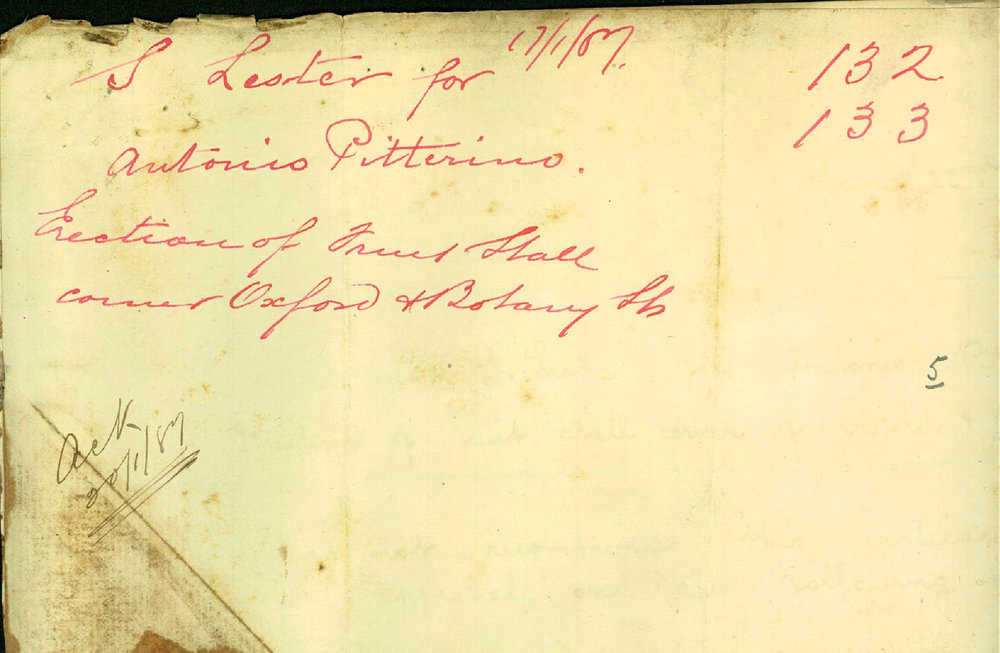 S Lester for 17/1/87. 132
133
Antonio Pitterino.
Erection of Fruit Stall
corner Oxford & Botany Sts
5
Ack
20/1/87